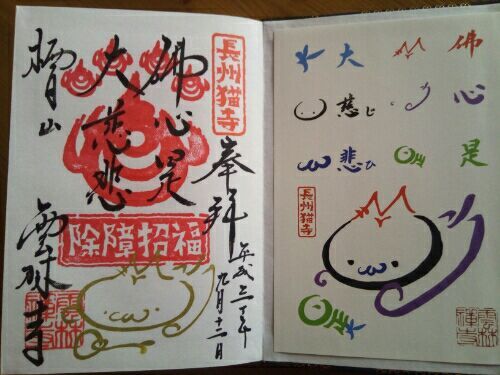 長州猫寺
奉拝
佛心是
大慈悲
栖月山
雲林寺
除障招福
平成三十年
九月十二日
雲林禅寺
佛心是
大慈じ悲ひ
長州猫寺
雲林禅寺